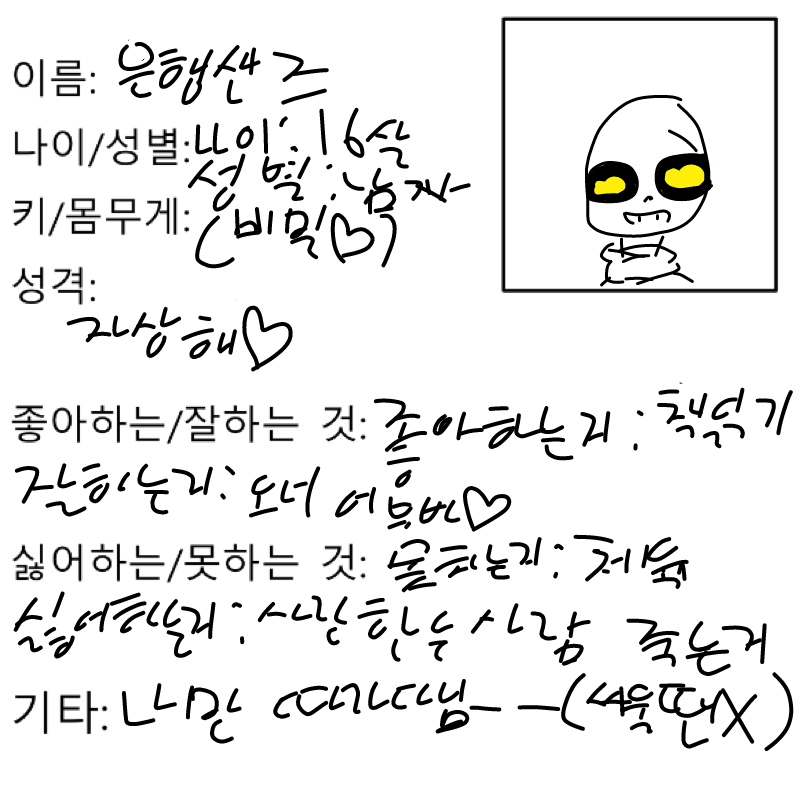 이름: 은행샌즈
나이/성별: 나이: 16살
성별: 남자
키/몸무게: (비밀♡)
성격:
자상해♡
좋아하는/잘하는 것: 좋아하는거: 책읽기
잘하는거:
싫어하는/못하는 것: 못하는거: 체육
싫어하는거: 사랑하는 사람 죽는거
기타: 나만